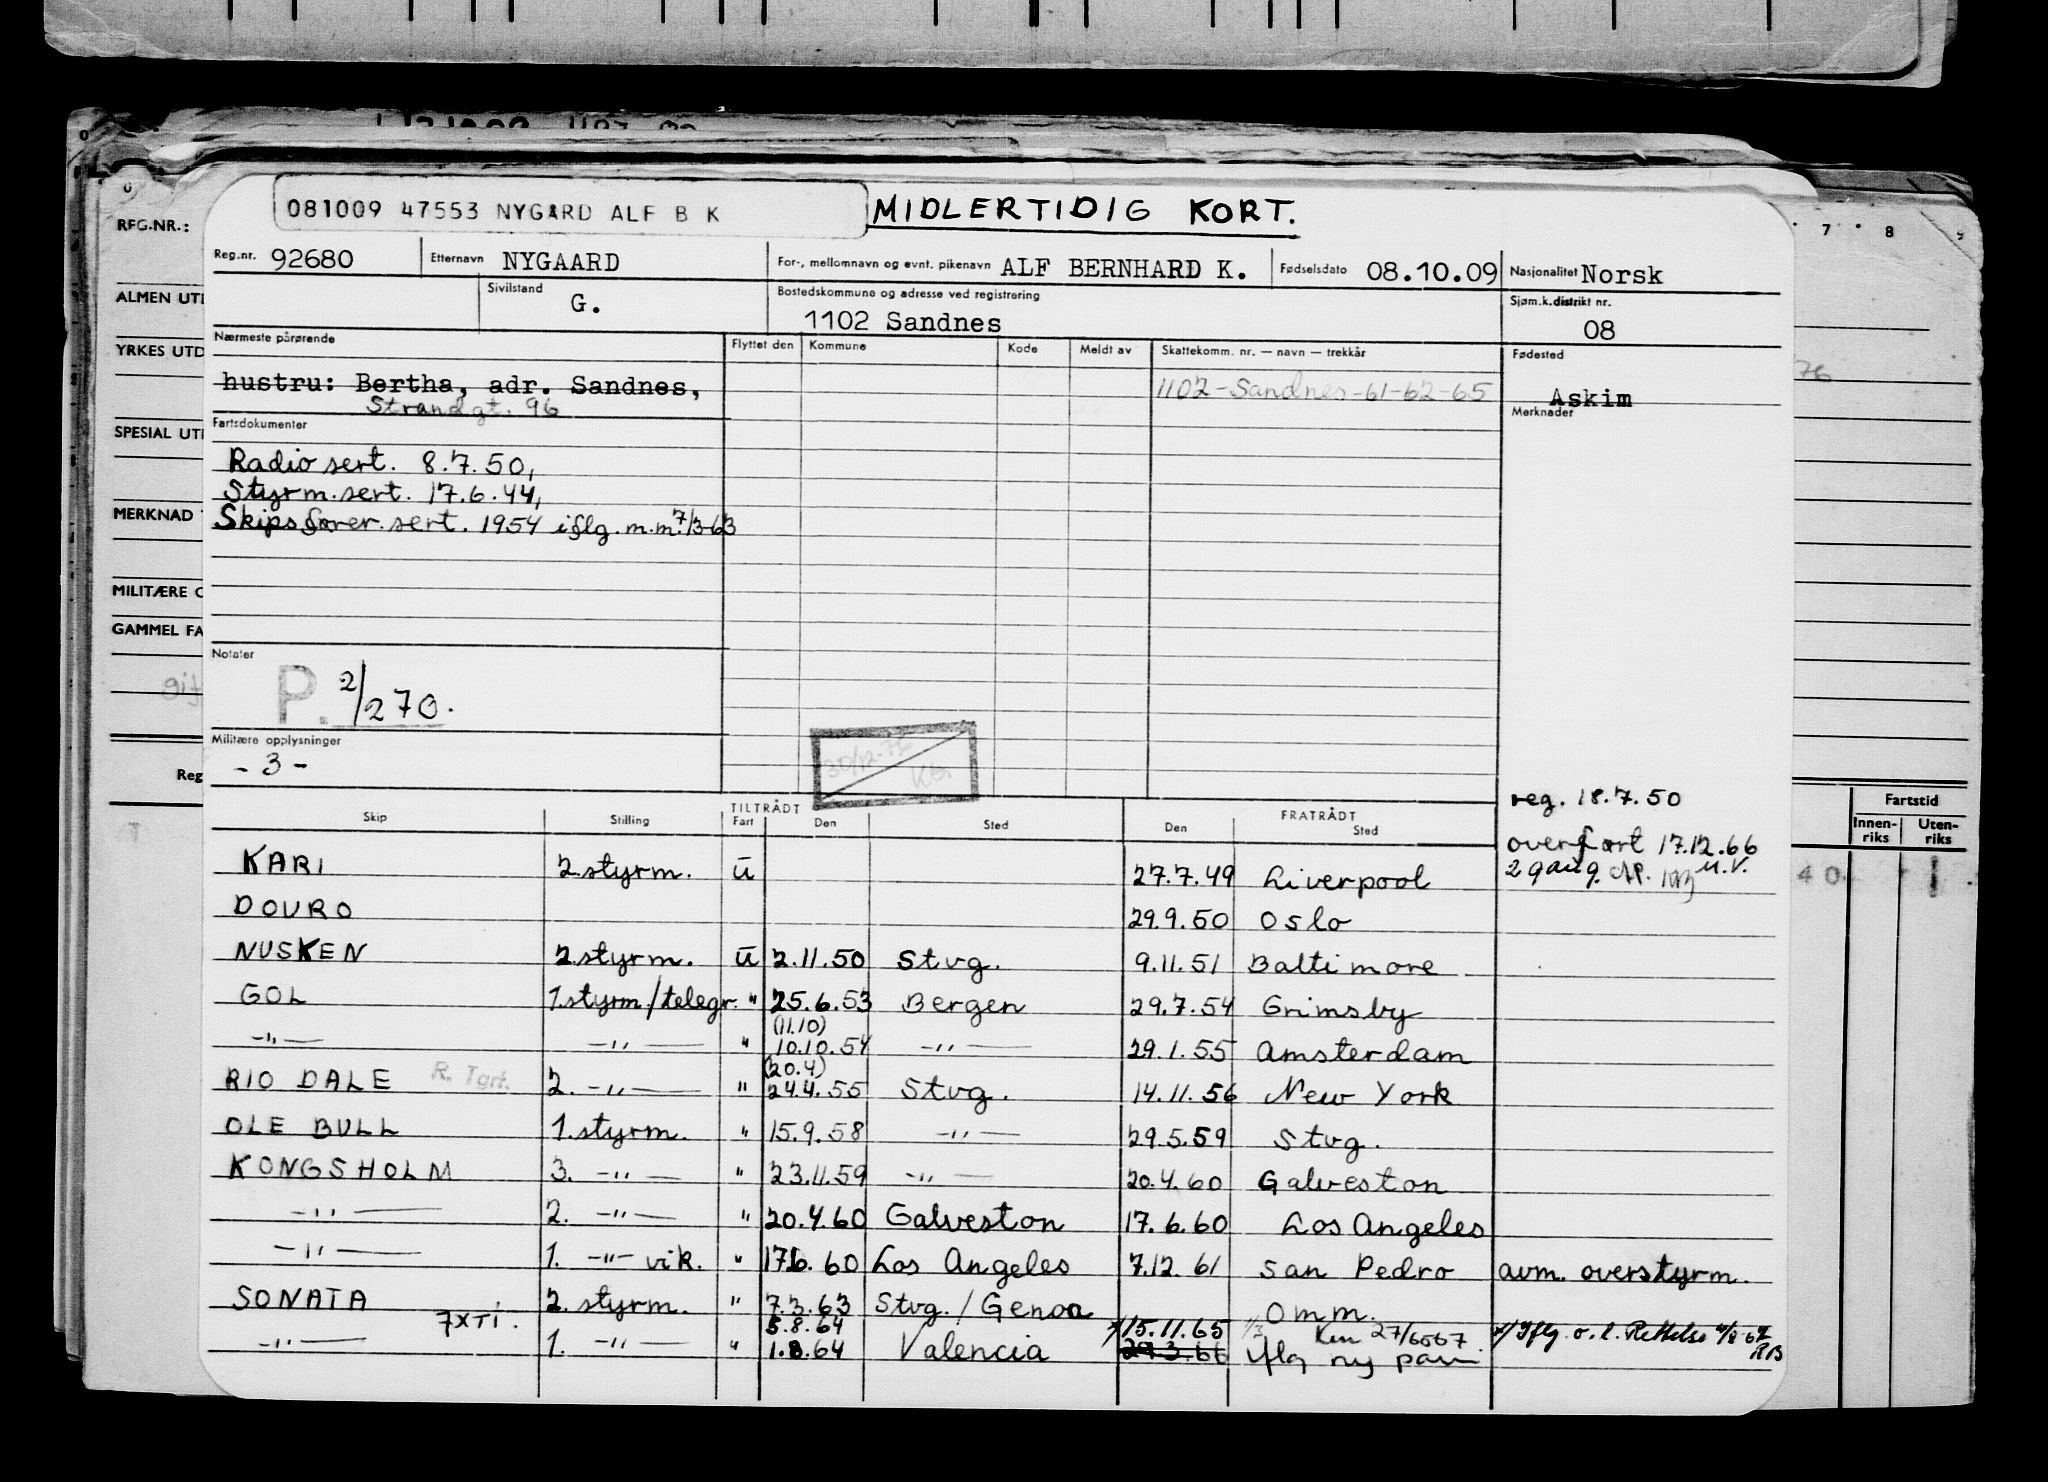 REG.NR.:
ALMEN UTD
YRKES UTD
SPECIAL UTD
MERKNAD
MILITÆRE
GAMMEL FA
7 8 9
Fartstid
Innen- Uten-
riks riks
081009 47553 NYGÅRD ALF B K
MIDLERTIDIG KORT.
Reg.nr. 92680 Etternavn NYGAARD For-, mellomnavn og evnt. pikenavn ALF BERNHARD K. Fødselsdato 08.10.09 Nasjonalitet Norsk
Sivilstand G. Bostedskommune og adresse ved registrering 1102 Sandnes Sjøm.k.distrikt nr. 08
Nærmeste pårørende Flyttet den Kommune Kode Meldt av Skattekomm. nr. — navn — trekkår Fødested
hustru: Bertha, adr. Sandnes, 1102-Sandnes-61-62-65 Askim
Strandgt. 96
Fartsdokumenter Merknader
Radio sert. 8.7.50,
Styrm.sert. 17.6.44,
Skipsfører.sert. 1954 iflg. m.m. 7/3-63
Notater
P. 2/270.
Militære opplysninger
- 3 -
30/12-76
reg. 18.7.50
overført 17.12.66
TILTRÅDT FRATRÅDT
Skip Stilling Fart Den Sted Den Sted
KARI 2.styrm. U 27.7.49 Liverpool
DOURO 29.9.50 Oslo
NUSKEN 2.styrm. U 2.11.50 Stvg. 9.11.51 Baltimore
GOL 1.styrm/telegr. " 25.6.53 Bergen 29.7.54 Grimsby
(11.10)
—"— —"— " 10.10.54 —"— 29.1.55 Amsterdam
(20.4)
RIO DALE R. Tgrf. 2. —"— " 24.4.55 Stvg. 14.11.56 New York
OLE BULL 1.styrm. " 15.9.58 —"— 29.5.59 Stvg.
KONGSHOLM 3. —"— " 23.11.59 —"— 20.4.60 Galveston
—"— 2. —"— " 20.4.60 Galveston 17.6.60 Los Angeles
—"— 1. —"— vik. " 17.6.60 Los Angeles 7.12.61 San Pedro avm. overstyrm.
SONATA 2. styrm. " 7.3.63 Stvg. / Genoa Omm.
7XTI. 5.8.64 x/15.11.65 27/6567 x/Iflg. o. l. Rettelse
—"— 1. —"— " 1.8.64 Valencia 29.3.66 iflg ny RB